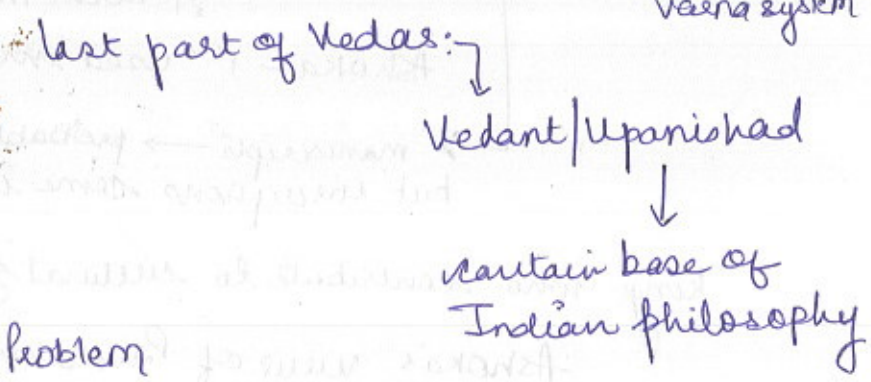 Varna system
last part of Vedas:-
Vedant/Upanishad
contain base of
Indian philosophy
Problem